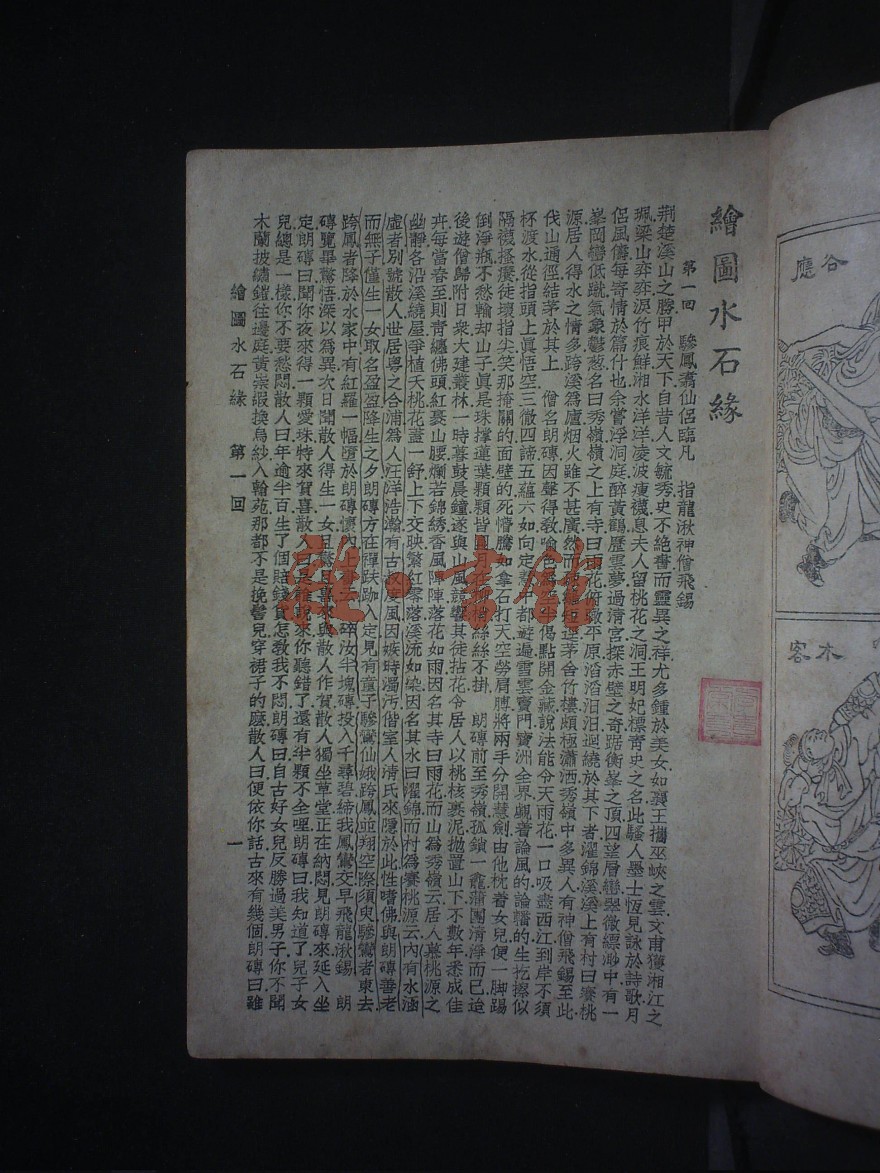 繪圖水石緣
第一回　驂鳳鸞仙侶臨凡　指龍湫神僧飛錫
荆楚溪山之勝甲於天下自昔人文毓秀史不絶書而靈異之祥尤多鍾於美女如襄王攜巫峽之雲文甫獲湘江之
珮梁山弈弈淚竹痕鮮湘水洋洋凌波襪息夫人留桃花之洞王明妃標靑史之名此騷人墨士恆見詠於詩歌月
侶風儔每寄情於篇什也余嘗浮洞庭醉黃鶴歷雲夢過淸宮探赤壁之奇踞衡峯之頂四望層巒翠微縹緲中有一
峯岡巒低蹴氣象鬱葱名曰秀嶺嶺之上有寺曰雨花俯瞰平原滔滔汨汨迴繞於其下者濯錦溪溪上有村曰賽桃
源居人得水之情多跨溪爲廬烟火雖不甚廣然而茅舍竹樓頗極瀟洒秀嶺中多異人有神僧飛錫至此
伐山通徑結茅於其上　僧名朗磚因聲得敎喻色偈點開金藏說法能令天雨花一口吸盡西江到岸不須
杯渡水從指頭上眞悟空三徹四諦五蘊六如向定都遊過雪雲竇門寶洲全界觀着論風的論旛的生扢擦似
隔襪搔癢徒壞指尖笑那掩關的面壁的死懵騰如拿石打天空勞肩膊將兩手分開慧劍由他枕着女兒便一脚踢
倒淨瓶不愁輸却山子眞是珠撑蓮葉顆顆皆圓絲絲不掛　朗磚前至秀嶺孤鎖一龕蒲團淸淨而已迨
後遊僧歸附日衆大建叢林一時暮鼓晨鐘遂與山風競響其徒拈花令居人以桃核裹泥拋置山下不數年悉成佳
卉每當春至則靑纏佛頭紅裹山腰爛若錦綉香風陣陣落花如雨因名其寺曰雨花而山爲秀嶺云居人慕桃源之
幽靜各沿溪繞屋爭植夭桃花蓋一舒上下交映繁紅零落溪流如染因名其水曰濯錦而村爲賽桃源云內有水涵
虛者別號散人世居粵之合浦爲人汪洋浩瀚有古叔度風因嫉時濁汚偕室人淸氏來隱於此性嗜佛與朗磚善老
而無子僅生一女取名盈盈降生之夕朗磚方在禪趺跏入定見有童子驂鸞仙娥跨鳳並翔空際須臾驂鸞者東去
跨鳳者降於水家中有紅羅一幅墮於朗磚懷內上云碎汝半塊磚投入千尋碧締我鳳鸞交早飛龍湫錫　朗
磚覽畢驚悟深以爲異次日聞散人得生一女且驚且喜來與散人作賀散人獨坐草堂正在納悶見朗磚來延入坐
定朗磚曰聞你夜來得一顆愛珠特來賀喜散人曰是誰說來你聽錯了還有半顆不全哩朗磚曰我知道了兒子女
兒總是一樣你不要愁悶散人曰年逾半百生了個賠錢貨怎敎我不悶朗磚曰自古好女兒反勝過美男子你不聞
木蘭披繡鎧往邊庭黃崇嘏換烏紗入翰苑那都不是挽髻兒穿裙子的麽散人曰便依你話古來有幾個朗磚曰雖
繪圖水石緣　第一回　一
谷應
木客
雜·書館